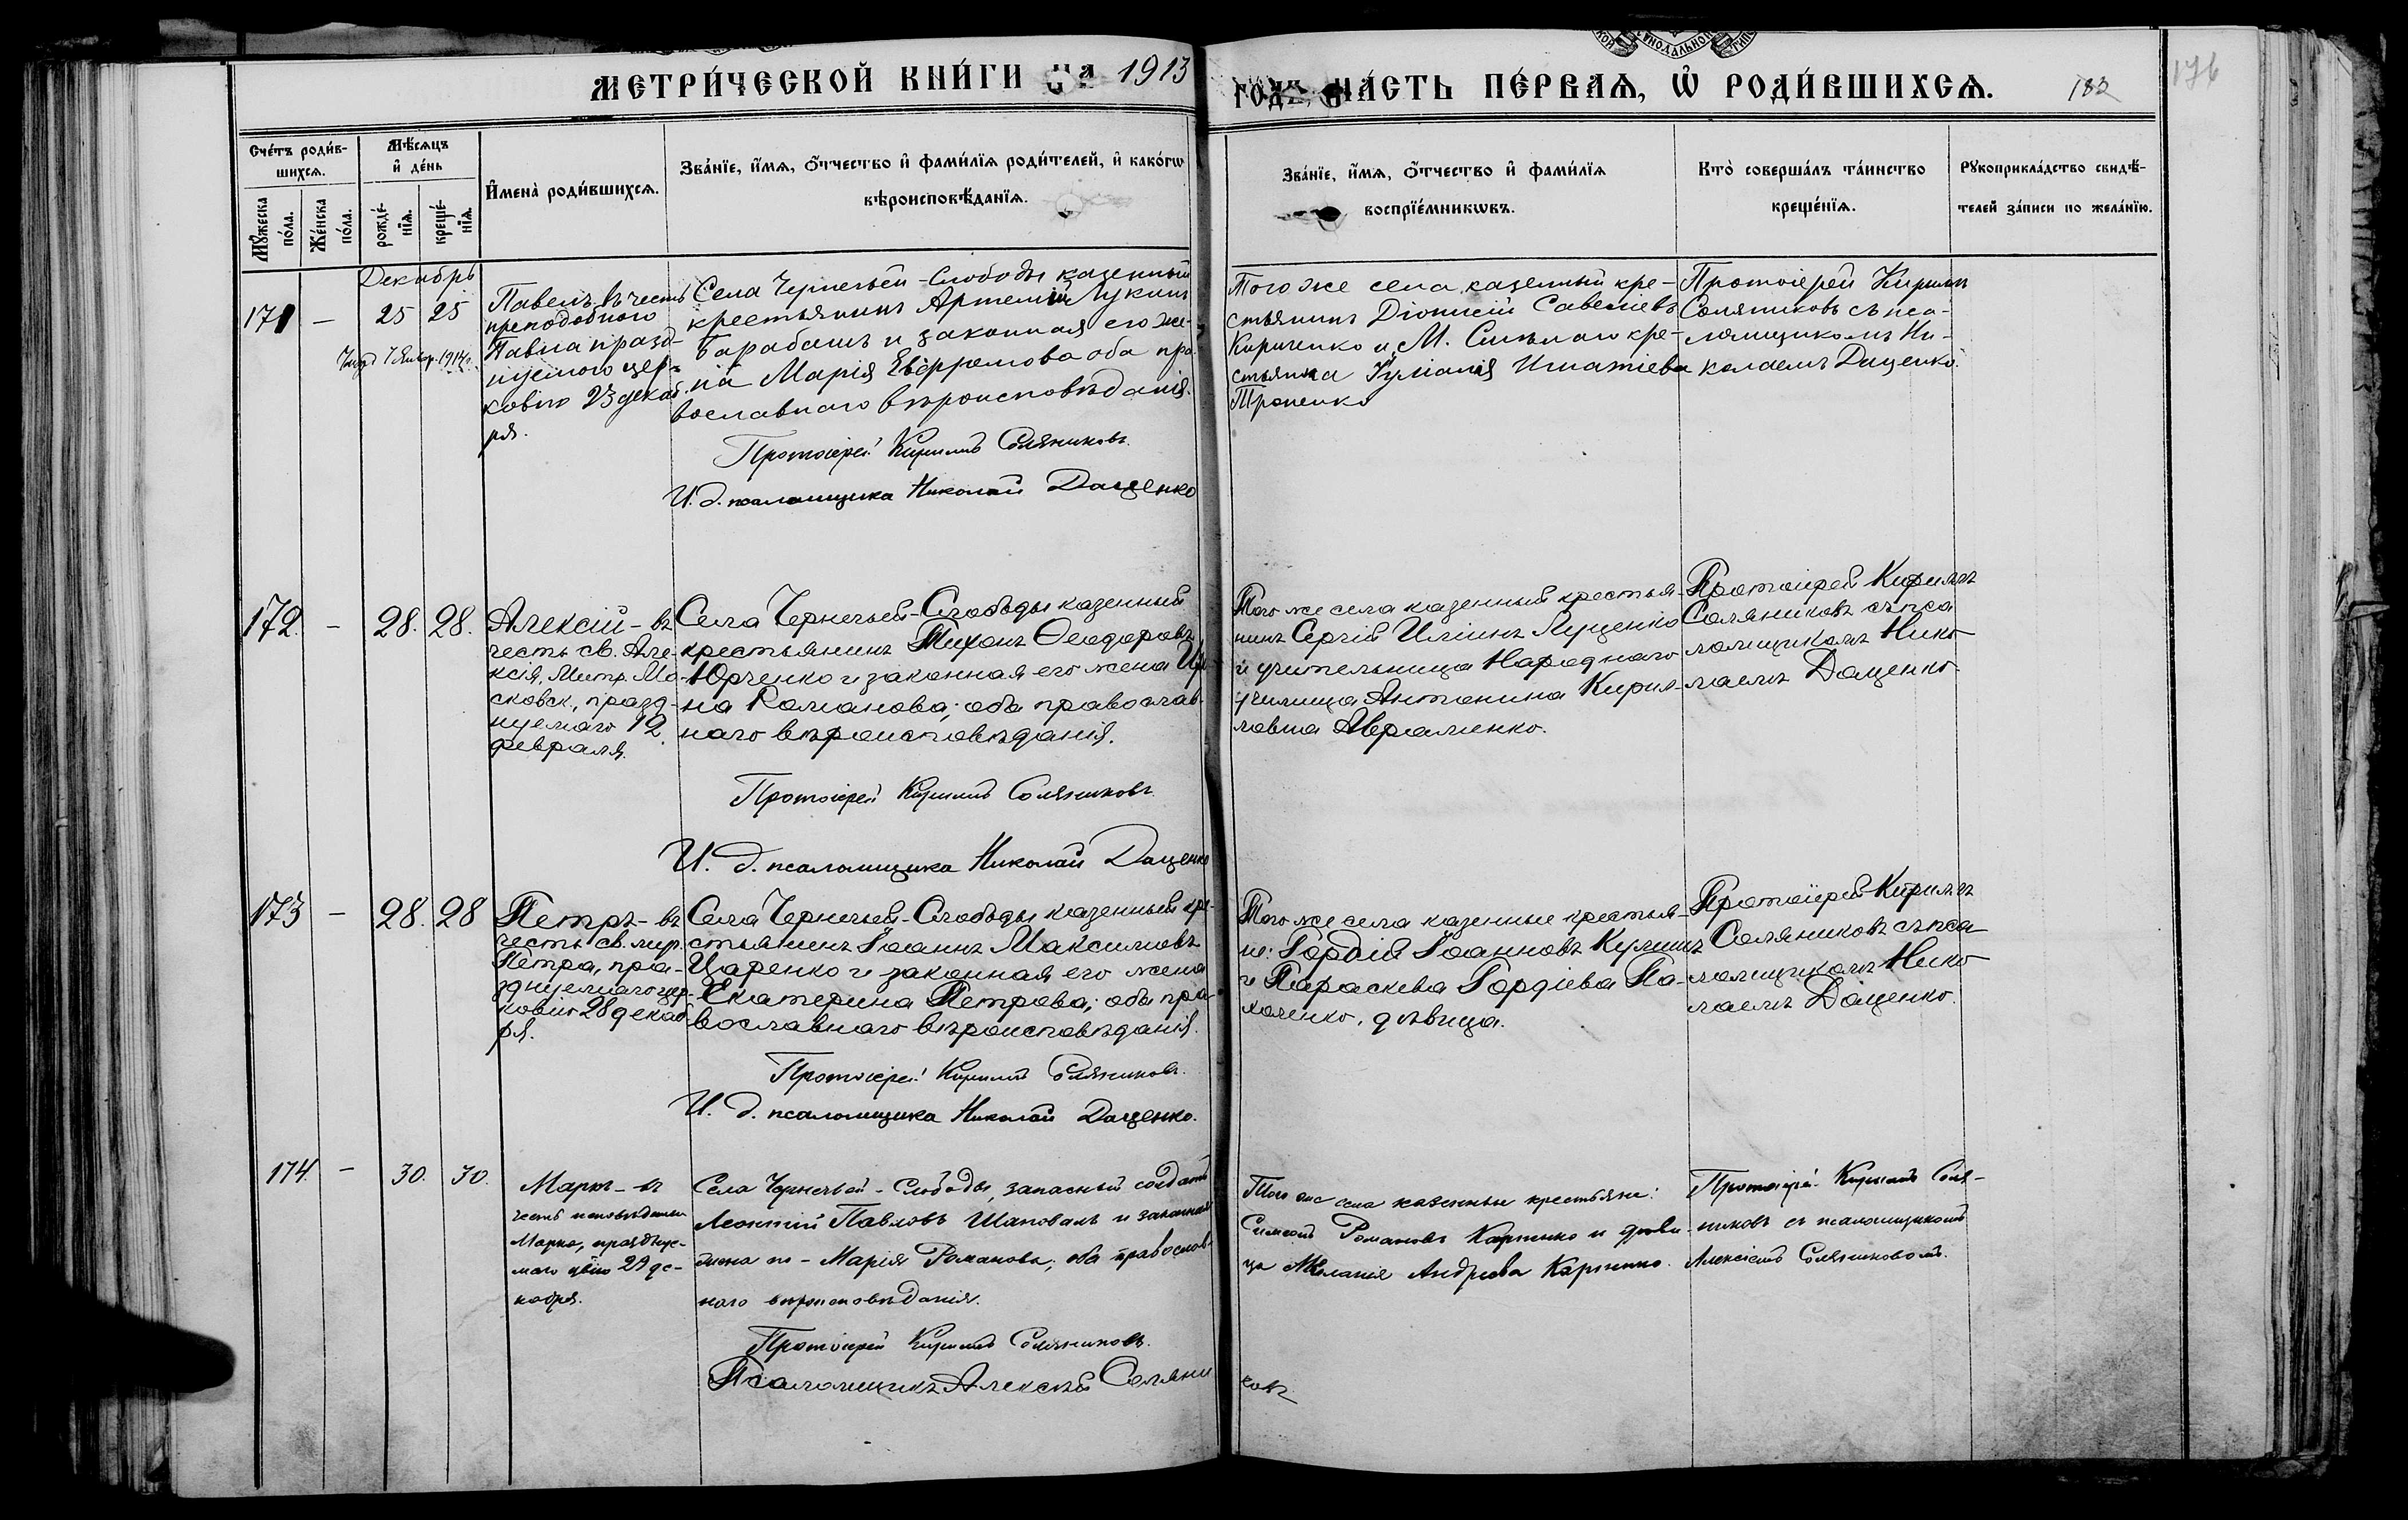 МЕТРИ́ЧЕСКОЙ КНИ́ГИ НА 1913
ГОДЪ, ЧА́СТЬ ПЕ́РВАѦ, Ѡ РОДИ́ВШИХСѦ.
183
176
Сче́тъ роди́в-
шихсѧ.
Мꙋ́жеска
по́ла.
Же́нска
по́ла.
Мѣ́сѧцъ
и де́нь
рожде́-
нїѧ.
креще́-
нїѧ.
И҆мена̀ роди́вшихсѧ.
Зва́нїе, и҆́мѧ, ѻ҆́тчество и҆ фами́лїѧ роди́телей, и҆ како́гѡ
вѣроисповѣ́данїѧ.
Зва́нїе, и҆́мѧ, ѻ҆́тчество и҆ фами́лїѧ
воспрїе́мникѡвъ.
Кто̀ соверша́лъ та́инство
креще́нїѧ.
Рꙋкоприкла́дство свидѣ́-
телей за́писи по жела́нїю.
Декабрь
171 — 25 25
7 Январ. 1914 г.
Павелъ въ честь
преподобного
Павла празд-
нуемого цер-
ковію 23 декаб
ря.
Села Чернечьей-Слободы казенный
крестьянинъ Артемій Лукинъ
Барабашъ и законная его же-
на Марія Евфремова оба пра-
вославнаго вѣроисповѣданія.
Протоіерей Кириллъ Соляниковъ.
И. д. псаломщика Николай Даценко
Того же села казенный кре-
стьянинъ Діонисій Савеліевъ
Кириченко и М. кре-
стьянка Іуліанія Игнатіева
Троненко
Протоіерей Кириллъ
Соляниковъ съ пса-
ломщикомъ Ни-
колаемъ Даценко.
172. — 28. 28.
Алексій - въ
честь св. Але-
ксія, Митр. Мо-
сковск., празд-
нуемаго 12
февраля.
Села Чернечьей-Слободы казенный
крестьянинъ Тихонъ Ѳеодоровъ
Юрченко и законная его жена Ири-
на Романова; оба православ-
наго вѣроисповѣданія.
Протоіерей Кириллъ Соляниковъ.
И. д. псаломщика Николай Даценко
Того же села казенный крестья-
нинъ Сергій Иліинъ Луценко
и учительница Народнаго
училища Антонина Кирил-
ловна Авраменко.
Протоіерей Кириллъ
Соляниковъ съ пса
ломщикомъ Нико
лаемъ Даценко.
173 — 28. 28
Петръ - въ
честь св. мир.
Петра, пра-
зднуемаго цер-
ковію 28 декаб
ря.
Села Чернечьей-Слободы казенный кре-
стьянинъ Іоаннъ Максимовъ
Царенко и законная его жена
Екатерина Петрова; оба пра-
вославнаго вѣроисповѣданія.
Протоіерей Кириллъ Соляниковъ.
И. д. псаломщика Николай Даценко.
Того же села казенные крестья-
не: Гордій Іоанновъ Кулишъ
и Параскева Гордіева Па-
холенко, дѣвица.
Протоіерей Кириллъ
Соляниковъ съ пса-
ломщикомъ Нико
лаемъ Даценко.
174. — 30. 30.
Маркъ - въ
честь исповѣдника
Марка, празднуе-
маго цѣю 29 де-
кабря.
Села Чернечьей-Слободы, запасный солдатъ
Леонтій Павловъ Шаповалъ и законная
жена его - Марія Романова; оба православ-
наго вѣроисповѣданія.
Протоіерей Кириллъ Соляниковъ.
Псаломщикъ Алексѣй Соляни
ковъ.
Того же села казенные крестьяне:
Симеонъ Романовъ Карпенко и дѣви-
ца Меланія Андреева Карпенко.
Протоіерей Кириллъ Соля-
никовъ съ псаломщикомъ
Алексіемъ Соляниковомъ.